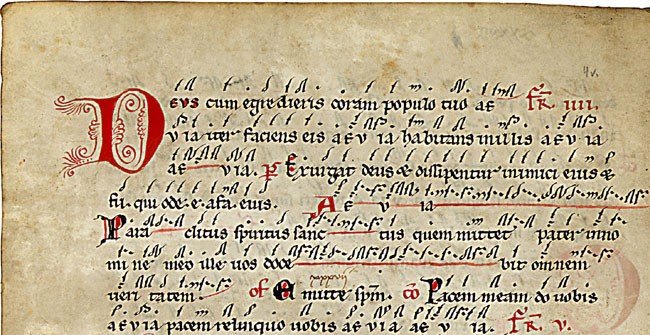 4v.
Deus cum egredieris coram populo tuo ae fr̄ iiii.
u ia iter faciens eis aeu ia habitans in illis ae u ia
ae u ia. Ps Exurgat deus & dissipentur inimici eius &
fu. qui ode.e. a fa. eius. Ae u ia
Para clitus spiritus sanc tus quem mittet pater in no
mi ne meo ille uos doce bit omnem
ueri tatem. of Emitte sp̄m. cō Pacem meam do uobis
ae u ia pacem relinquo uobis ae u ia ae u ia. fr̄ v.